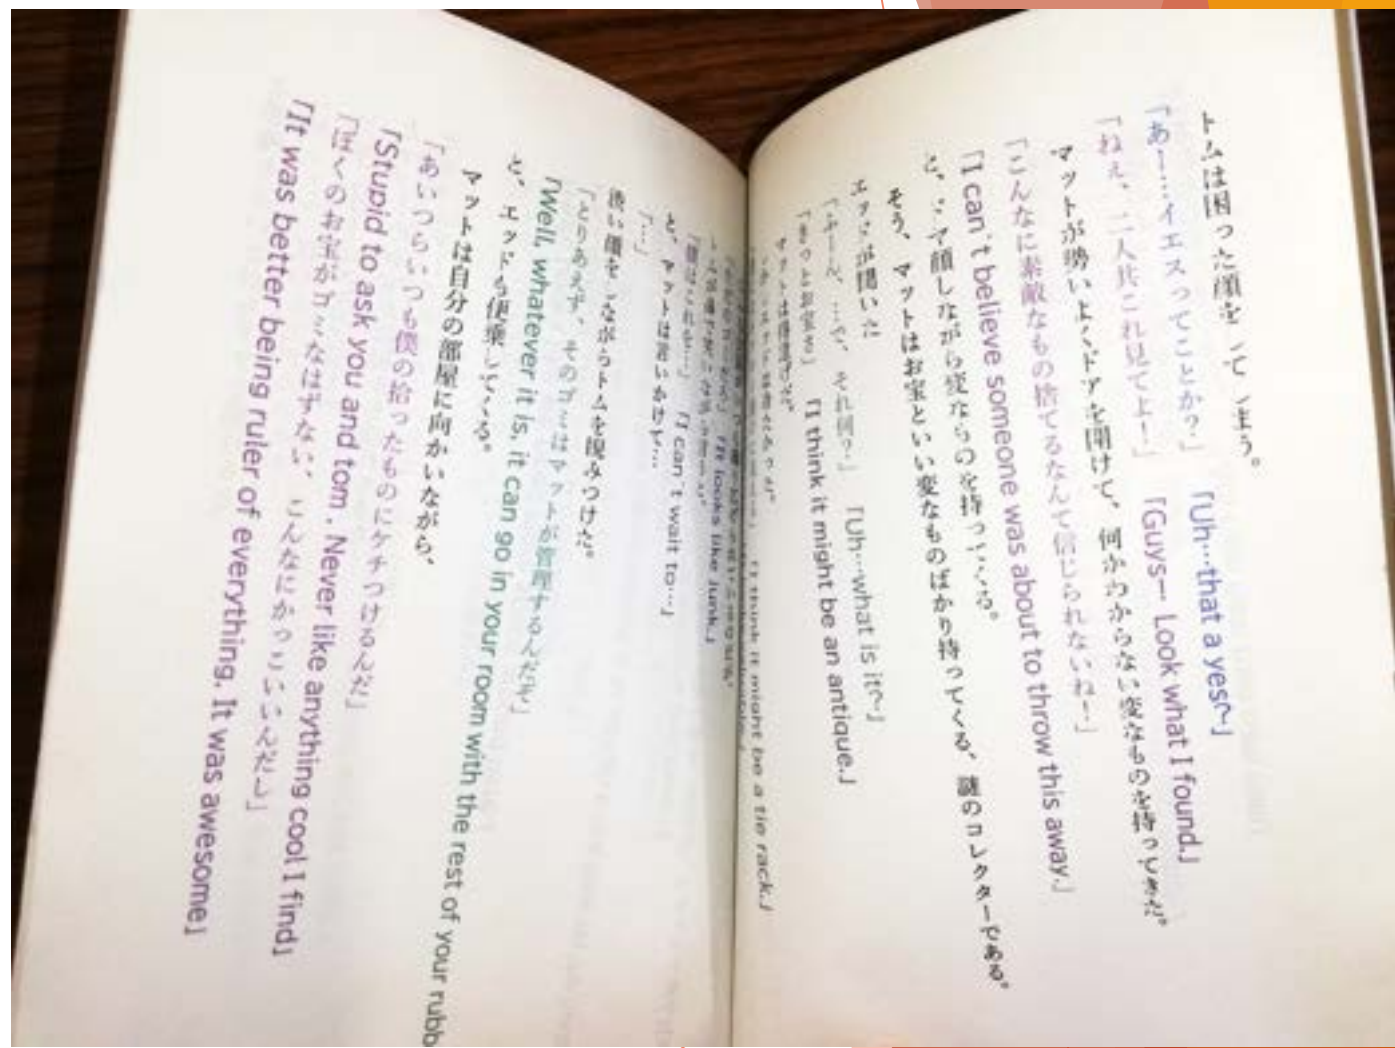 トムは困った顔をしてしまう。
「あー…イエスってことか?」「Uh…that a yes?」
「ねぇ、二人共これ見てよー」「Guysー Look what I found.」
マットが勢いよくドアを開けて、何かわからない変なものを持ってきた。
「こんなに素敵なもの捨てるなんて信じられないねー」
「I can't believe someone was about to throw this away.」
と、ドヤ顔しながら変なものを持ってくる。
そう、マットはお宝といい変なものばかり持ってくる、謎のコレクターである。
エッドが聞いた
「ふーん、…で、それ何?」「Uh…what is it?」
「きっとお宝さ」「I think it might be an antique.」
マットは
I think it might be a tie rack.」
「It looks like junk.」
「I can't wait to…」
と、マットは
「…」
渋い顔をしながらトムを睨みつけた。
「とりあえず、そのゴミはマットが管理するんだぞ」
「Well, whatever it is, it can go in your room with the rest of your rubb
と、エッドも便乗している。
マットは自分の部屋に向かいながら、
「あいつらいつも僕の拾ったものにケチつけるんだ」
「Stupid to ask you and tom . Never like anything cool I find」
「ぼくのお宝がゴミなはずない、こんなにかっこいいんだし」
「It was better being ruler of everything. It was awesome」